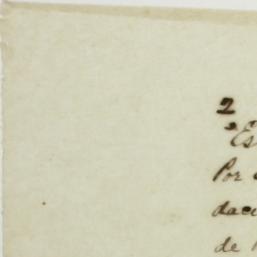 2
Es
Por
dacu
de